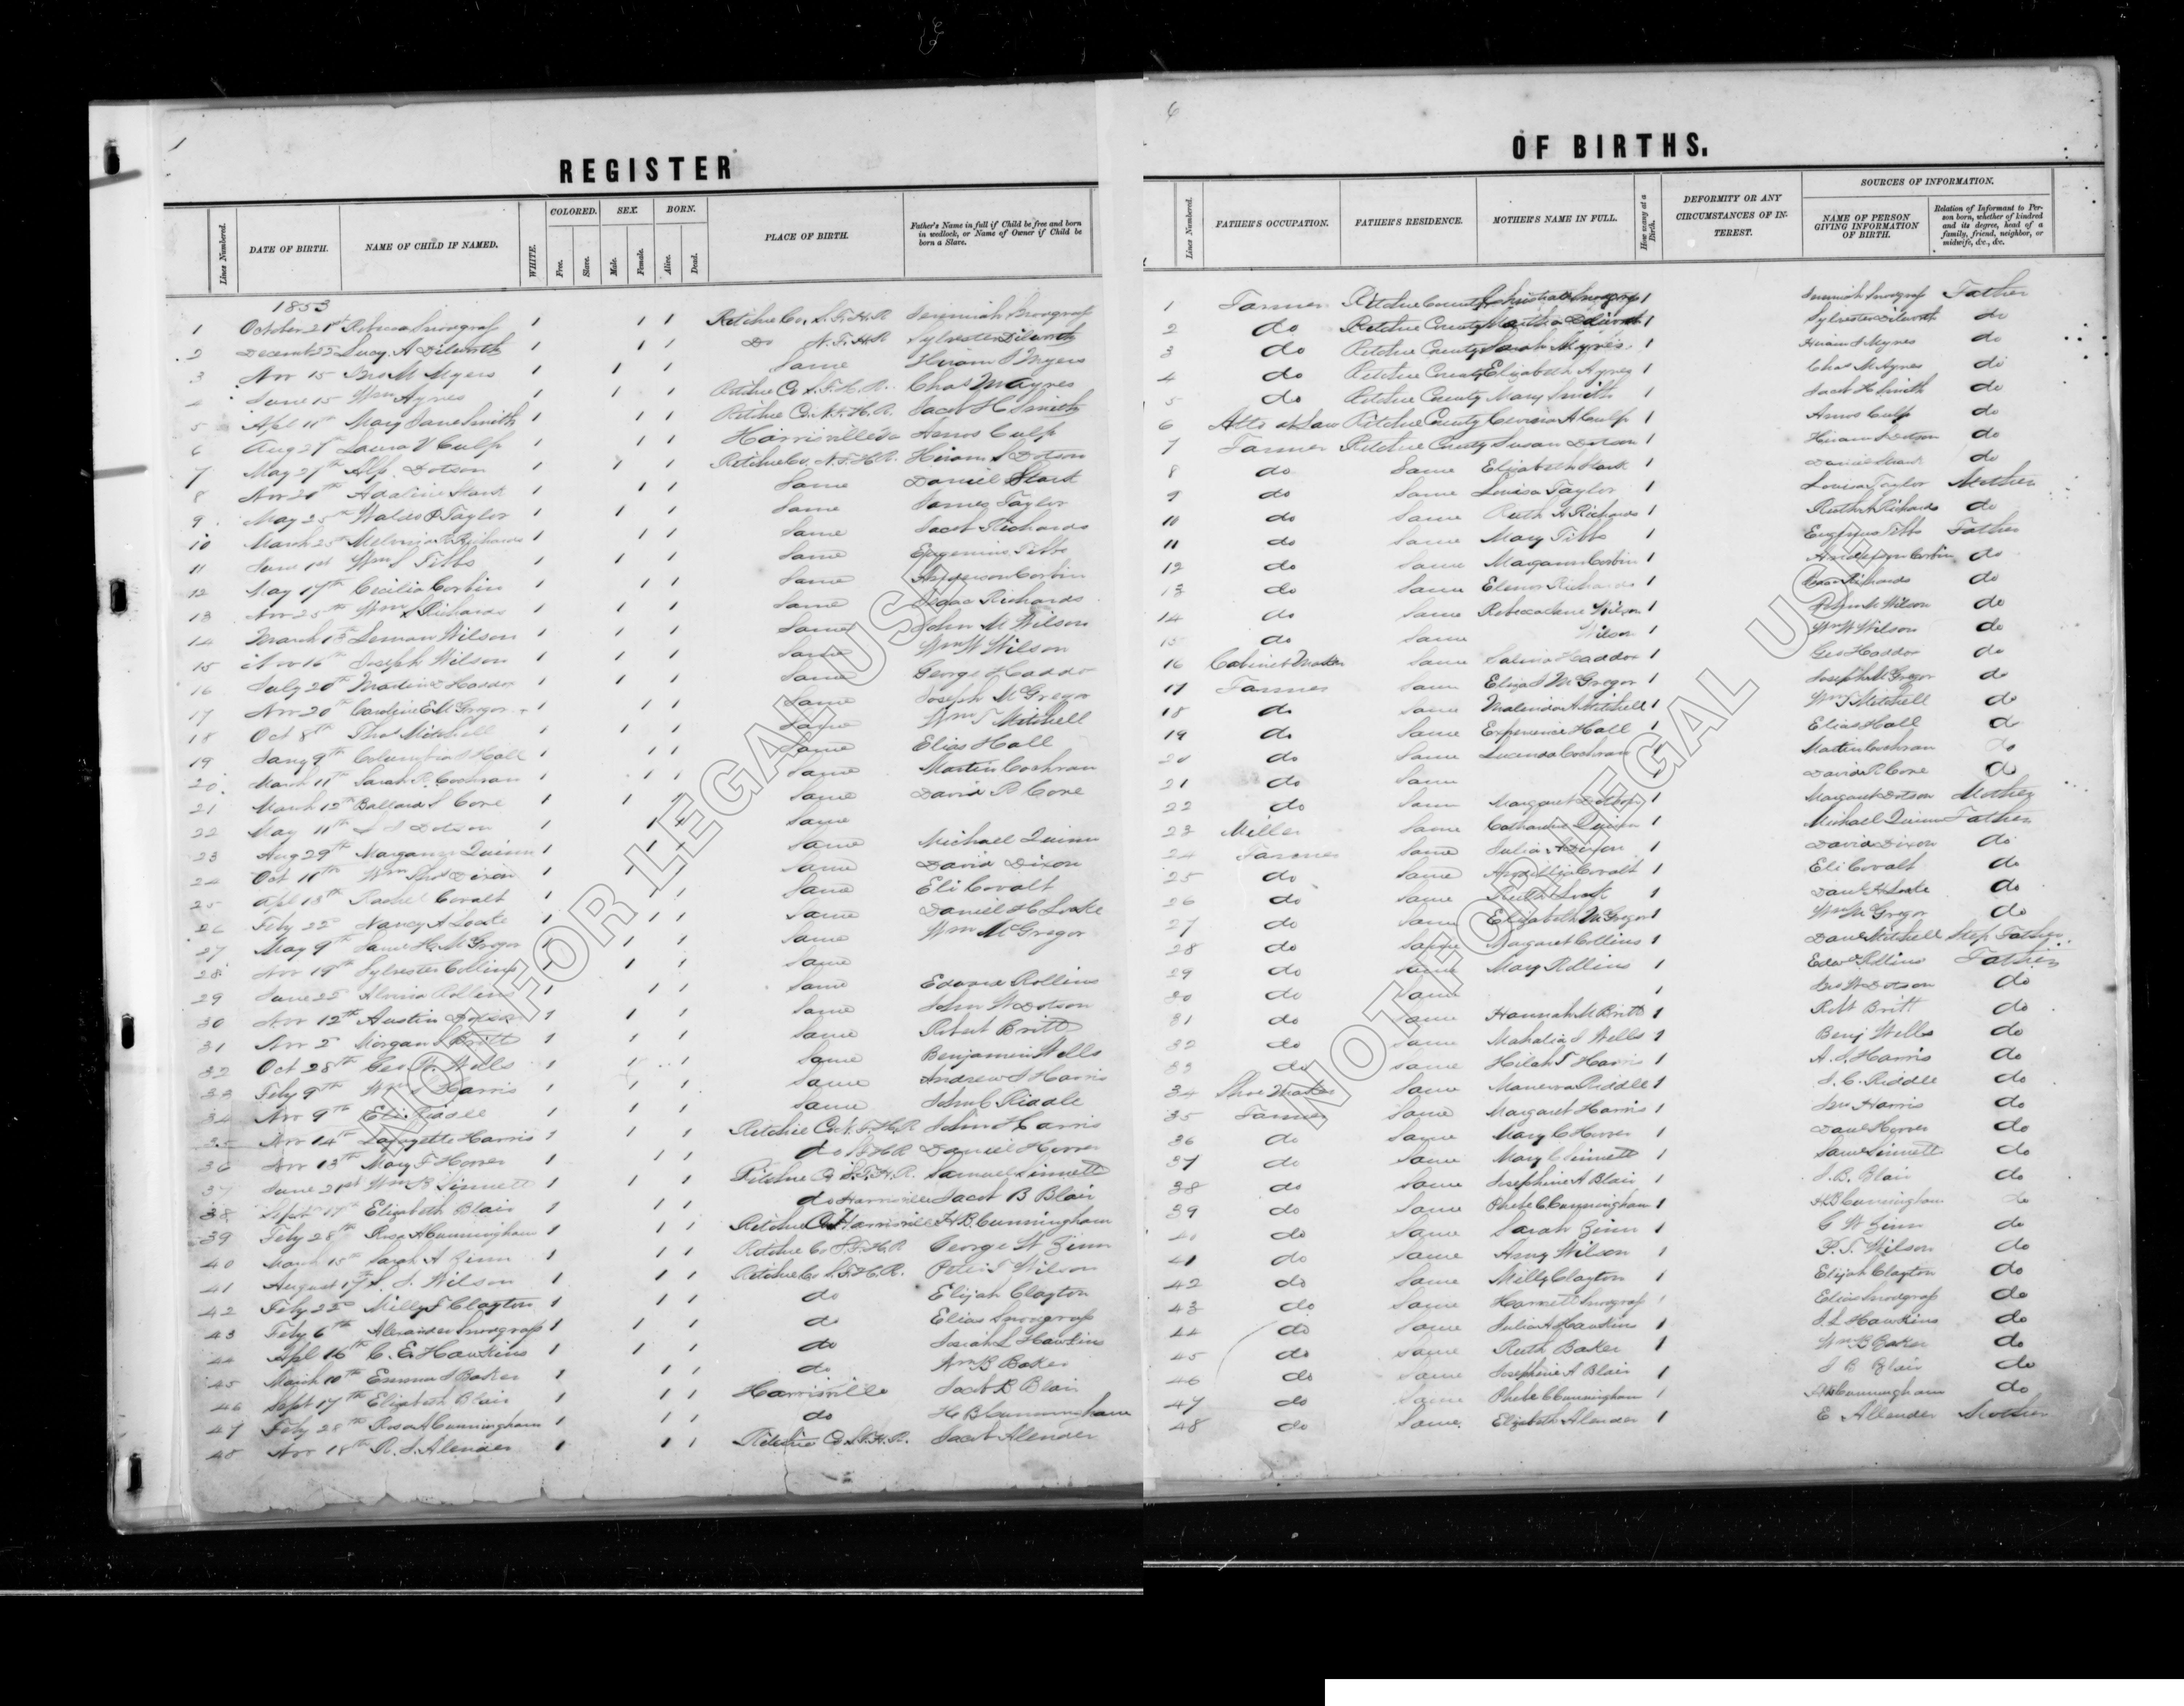 REGISTER
Lines Numbered. DATE OF BIRTH. NAME OF CHILD IF NAMED. WHITE. COLORED. Free. Slave. SEX. Male. Female. BORN. Alive. Dead. PLACE OF BIRTH. Father's Name in full if Child be free and born in wedlock, or Name of Owner if Child be born a Slave.
1853
1 October 21st Rebecca Snodgrass 1 1 1 Ritchie Co. S.F.H.R Jeremiah Snodgrass
2 Decem 22 Lucy A Dilworth 1 1 1 Do N.F.H.R Sylvester Dilworth
3 Nov 15 Jno M Myers 1 1 1 Same Hiram S Myers
4 June 15 Wm Aynes 1 1 1 Ritchie Co S.F.H.R. Chas M Aynes
5 Apl 11th Mary Jane Smith 1 1 1 Ritchie Co. N.F.H.R. Jacob H Smith
6 Aug 27th Laura V Culp 1 1 1 Harrisville Amos Culp
7 May 27th Alf. Dotson 1 1 1 Ritchie Co. N.F.H.R. Hiram S Dotson
8 Nov 20th Adaline Stark 1 1 1 Same Daniel Stark
9 May 25th Waldo P Taylor 1 1 1 Same James Taylor
10 March 25th Richards 1 1 1 Same Jacob Richards
11 June 1st Wm S Tibbs 1 1 1 Same Eugenius Tibbs
12 May 17th Cecilia Corbin 1 1 1 Same Anderson Corbin
13 Nov 25th Wm S Richards 1 1 1 Same Isaac Richards
14 March 13 Leman Wilson 1 1 1 Same John M Wilson
15 Nov 16th Joseph Wilson 1 1 1 Same Wm W Wilson
16 July 20th Haddox 1 1 1 Same George Haddox
17 Nov 20th Caroline E McGregor 1 1 1 Same Joseph McGregor
18 Oct 8th Thos Mitchell 1 1 1 Same Wm T Mitchell
19 Jany 9th Columbia S Hall 1 1 1 Same Elias Hall
20 March 11th Sarah R. Cochran 1 1 1 Same Martin Cochran
21 March 12th Ballard S Cone 1 1 1 Same David P Cone
22 May 11th S J Dotson 1 1 1 Same
23 Aug 29th Quinn 1 1 1 Same Michael Quinn
24 Oct 10th Wm Thos Dixon 1 1 1 Same David Dixon
25 Apl 18th Rachel Covalt 1 1 1 Same Eli Covalt
26 Feby 22 Nancy A 1 1 1 Same Daniel H
27 May 9th James H. McGregor 1 1 1 Same Wm McGregor
28 Nov 19th Sylvester Collins 1 1 1 Same
29 June 25 Rollins 1 1 1 Same Edward Rollins
30 Nov 12th Austin Dotson 1 1 1 Same John W Dotson
31 Nov 2 Morgan Britt 1 1 1 Same Robert Britt
32 Oct 28th Geo W. Wells 1 1 1 Same Benjamin Wells
33 Feby 9th Wm Harris 1 1 1 Same Andrew S Harris
34 Nov 9th Eli Riddle 1 1 1 Same John C Riddle
35 Nov 14th Lafayette Harris 1 1 1 Ritchie Co. N.F.H.R John Harris
36 Nov 13th Mary F 1 1 1 do Daniel
37 June 21st Wm B Sinnett 1 1 1 Ritchie Co S.F.H.R. Samuel Sinnett
38 Sept 17 Elizabeth Blair 1 1 1 do Harrisville Jacob B Blair
39 Feby 28th Rosa A Cunningham 1 1 1 Ritchie Co Harrisville H.B. Cunningham
40 March 15 Sarah A Zinn 1 1 1 Ritchie Co S.F.H.R George W Zinn
41 August 17 S. J. Wilson 1 1 1 Ritchie Co S.F.H.R. Peter T Wilson
42 Feby 22 Milly F Clayton 1 1 1 do Elijah Clayton
43 Feby 6th Alexander Snodgrass 1 1 1 do Elias Snodgrass
44 Apl 16th C. E. Hawkins 1 1 1 do Josiah L Hawkins
45 March 10th Emma S Baker 1 1 1 do Wm B Baker
46 Sept 17th Elizabeth Blair 1 1 1 Harrisville Jacob B Blair
47 Feby 28th Rosa A Cunningham 1 1 1 do H B Cunningham
48 Nov 18th R. J. Alender 1 1 1 Ritchie Co S.F.H.R. Jacob Alender
6
OF BIRTHS.
Lines Numbered. FATHER'S OCCUPATION. FATHER'S RESIDENCE. MOTHER'S NAME IN FULL. How many at a Birth. DEFORMITY OR ANY CIRCUMSTANCES OF INTEREST. SOURCES OF INFORMATION. NAME OF PERSON GIVING INFORMATION OF BIRTH. Relation of Informant to Person born, whether of kindred and its degree, head of a family, friend, neighbor, or midwife, &c., &c.
1 Farmer Ritchie County Snodgrass 1 Jeremiah Snodgrass Father
2 do Ritchie County Martha Dilworth 1 Sylvester Dilworth do
3 do Ritchie County Sarah Myres 1 Hiram S Myres do
4 do Ritchie County Elizabeth Aynes 1 Chas M Aynes do
5 do Ritchie County Mary Smith 1 Jacob H Smith do
6 Atto at Law Ritchie County A Culp 1 Amos Culp do
7 Farmer Ritchie County Susan Dotson 1 Hiram S Dotson do
8 do Same Elizabeth Stark 1 Daniel Stark do
9 do Same Louisa Taylor 1 Louisa Taylor Mother
10 do Same Ruth A Richards 1 Ruth A Richards do
11 do Same Mary Tibbs 1 Eugenius Tibbs Father
12 do Same Margann Corbin 1 Anderson Corbin do
13 do Same Elenor Richards 1 Isaac Richards do
14 do Same Rebecca Jane Wilson 1 John M Wilson do
15 do Same Wilson 1 Wm W Wilson do
16 Cabinet Maker Same Salina Haddox 1 Geo Haddox do
17 Farmer Same Eliza J McGregor 1 Joseph McGregor do
18 do Same Malinda A Mitchell 1 Wm T Mitchell do
19 do Same Experience Hall 1 Elias Hall do
20 do Same Lucinda Cochran 1 Martin Cochran do
21 do Same 1 David P. Cone do
22 do Same Margaret Dotson 1 Margaret Dotson Mother
23 Miller Same Catharine Quinn 1 Michael Quinn Father
24 Farmer Same Julia A Dixon 1 David Dixon do
25 do Same Covalt 1 Eli Covalt do
26 do Same Ruth 1 Danl H do
27 do Same Elizabeth McGregor 1 Wm McGregor do
28 do Same Margaret Collins 1 Danl Mitchell Step Father
29 do Same Mary Rollins 1 Edwd Rollins Father
30 do Same 1 Jno W Dotson do
31 do Same Hannah M Britt 1 Robt Britt do
32 do Same Mahalia J Wells 1 Benj Wells do
33 do Same Hilah T Harris 1 A. S. Harris do
34 Shoe Maker Same Manerva Riddle 1 J. C. Riddle do
35 Farmer Same Margaret Harris 1 Jno Harris do
36 do Same Mary C 1 Danl do
37 do Same Mary C Sinnett 1 Saml Sinnett do
38 do Same Josephine A Blair 1 J. B. Blair do
39 do Same Phebe C Cunningham 1 H B Cunningham do
40 do Same Sarah Zinn 1 G W Zinn do
41 do Same Amy Wilson 1 P. T. Wilson do
42 do Same Milly Clayton 1 Elijah Clayton do
43 do Same Harriett Snodgrass 1 Elias Snodgrass do
44 do Same Julia A Hawkins 1 J. L Hawkins do
45 do Same Ruth Baker 1 Wm B Baker do
46 do Same Josephine A Blair 1 J B Blair do
47 do Same Phebe C Cunningham 1 H B Cunningham do
48 do Same Elizabeth Alender 1 E Allender Mother
NOT FOR LEGAL USE
NOT FOR LEGAL USE